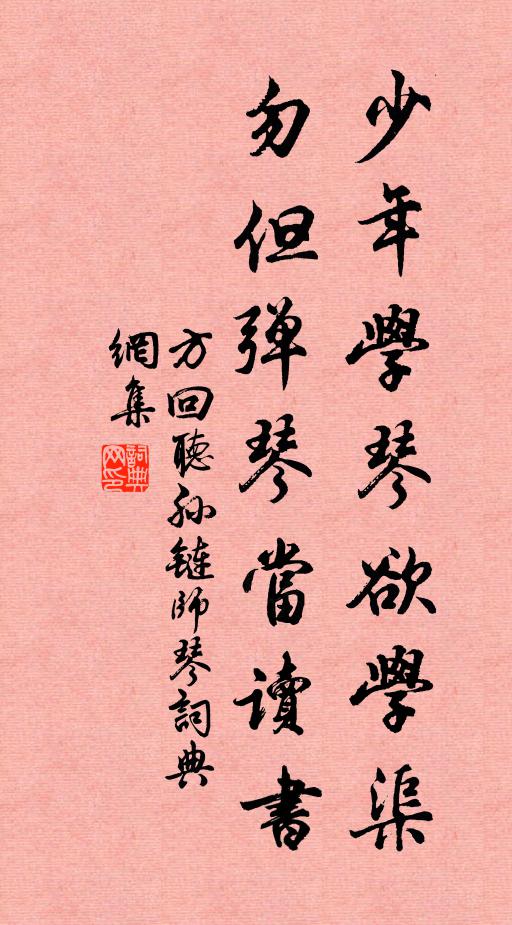 少年學琴欲學渠
勿但弹琴當讀書
方回聽孙鏈師琴詞典
網集
詞典網印